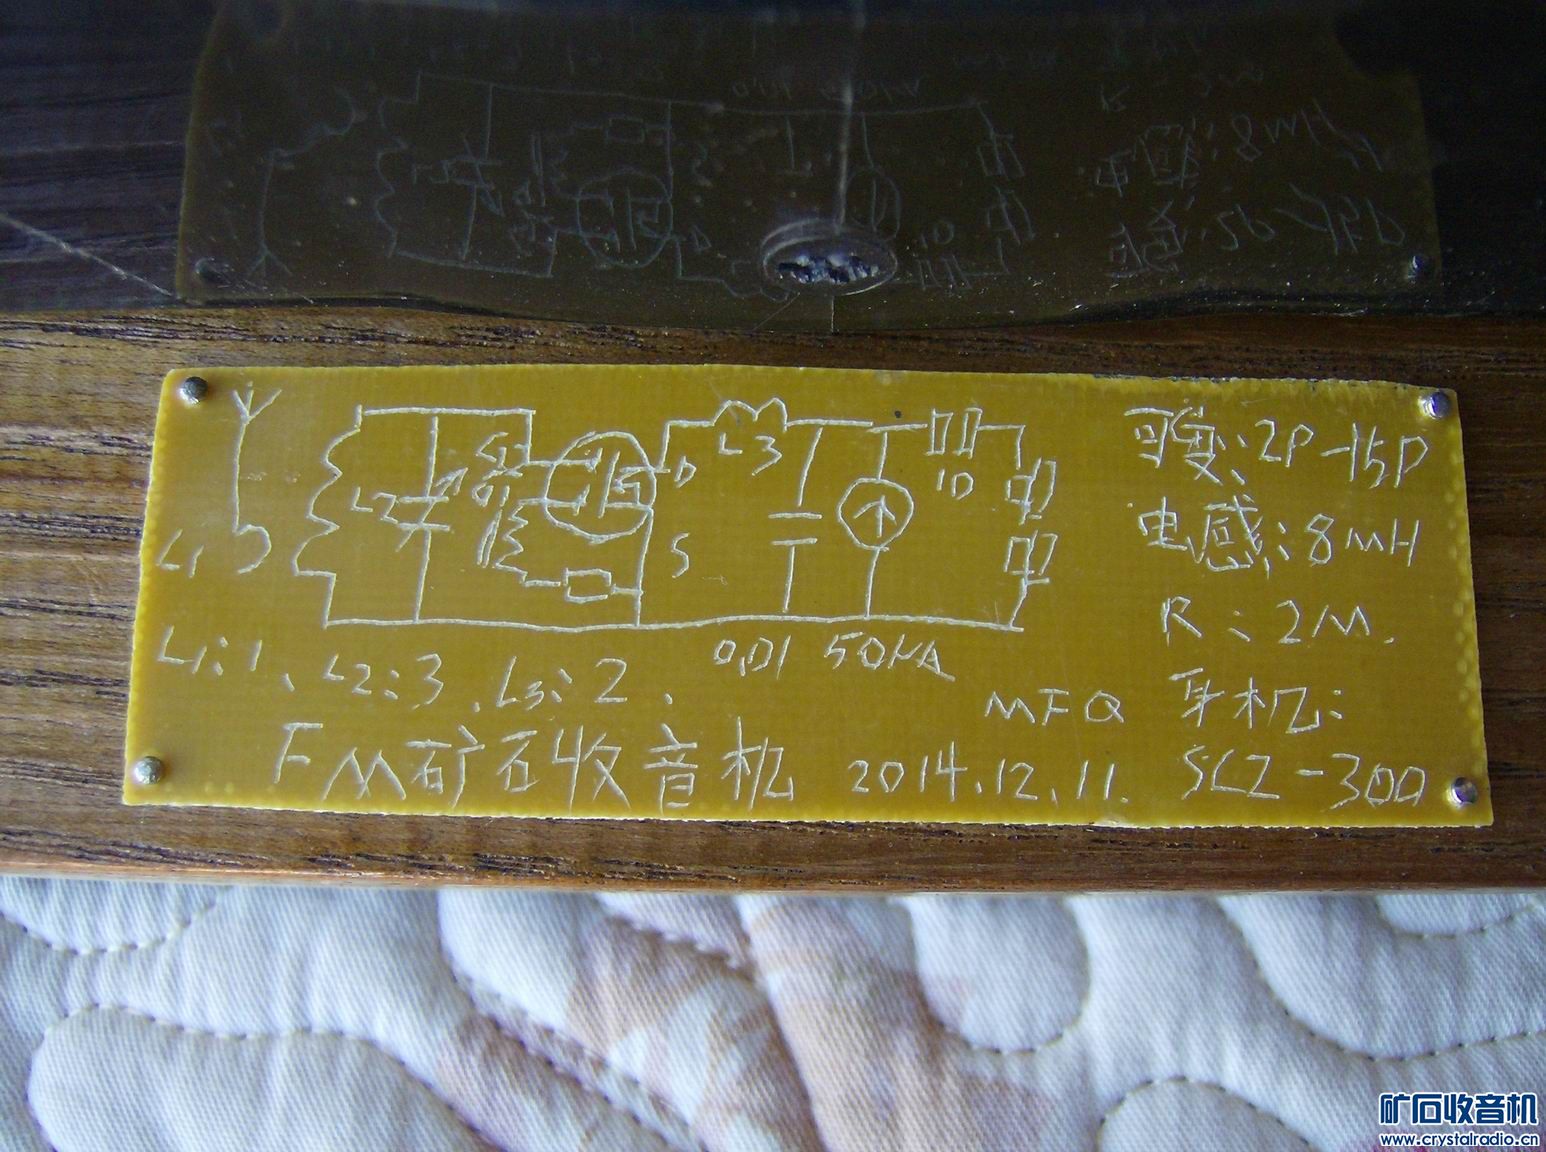 可变:2P-15P
G2
D
L2
G1
L3
10
电感:8mH
L1
S
R:2M.
L1:1、L2:3、L3:2、
0,01 50μA
MFQ
耳机:
FM矿石收音机 2014.12.11.
SCZ-300
矿石收音机
www.crystalradio.cn